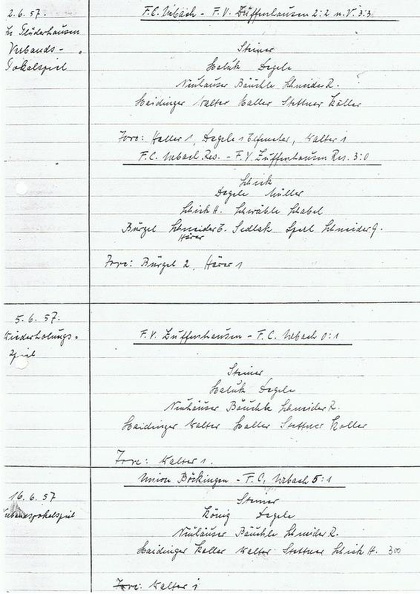 2.6.57.
In Plüderhausen
Verbands-
Pokalspiel
F.C. Urbach - F.V. Zuffenhausen 2:2 n.V. 3:3.
Steiner
Degele
Neuhäuser Bäuchle Schneider R.
Haidinger Walter Haller Stettner Haller
Tore: Haller 1, Degele 1 Elfmeter, Walter 1
F.C. Urbach Res. - F.V. Zuffenhausen Res. 3:0
Schick
Degele Müller
Schick H. Schwäble Schabel
Bürgel Schneider E. Sedlak Sperl Schneider G.
Härer
Tore: Bürgel 2, Härer 1
5.6.57.
Wiederholungs-
spiel
F.V. Zuffenhausen - F.C. Urbach 0:1
Steiner
Degele
Neuhäuser Bäuchle Schneider R.
Haidinger Walter Haller Stettner Haller
Tore: Walter 1.
16.6.57
Verbandspokalspiel
Union Böckingen - F.C. Urbach 5:1
Steiner
König Degele
Neuhäuser Bäuchle Schneider R.
Haidinger Haller Walter Stettner Schick H. 300
Tore: Walter 1